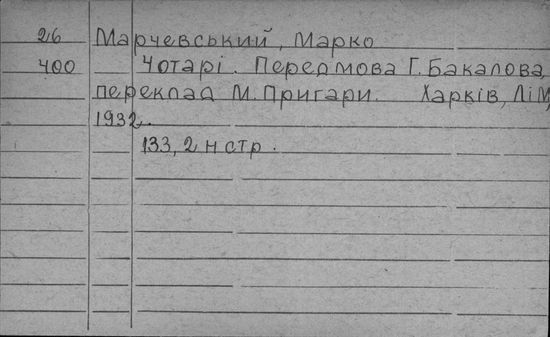 26 Марчевський, Марко
400 Чотарі. Передмова Г. Бакалова,
переклад М. Пригари. Харків, ЛіМ
1932.
133, 2 н стр.